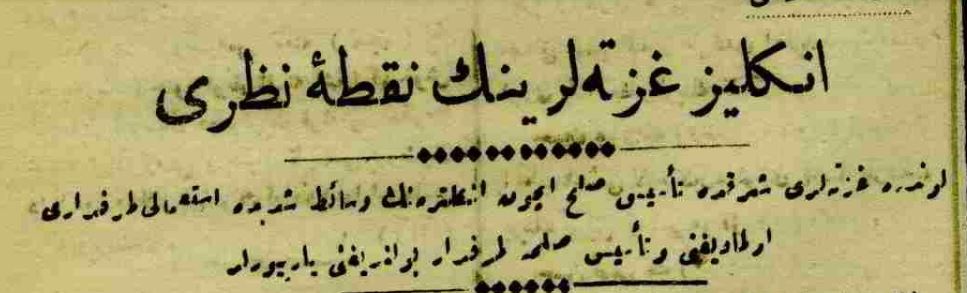 انكليز غزته‌لرينك نقطهٔ نظرى
لوندره غزته‌لرى شرقده تأسيس صلح ايچون انكلتره‌نك وسائط شديده استعمالى طرفدارى
اولماديغنى و تأسيس صلحه طرفدار بولنديغنى يازييورلر